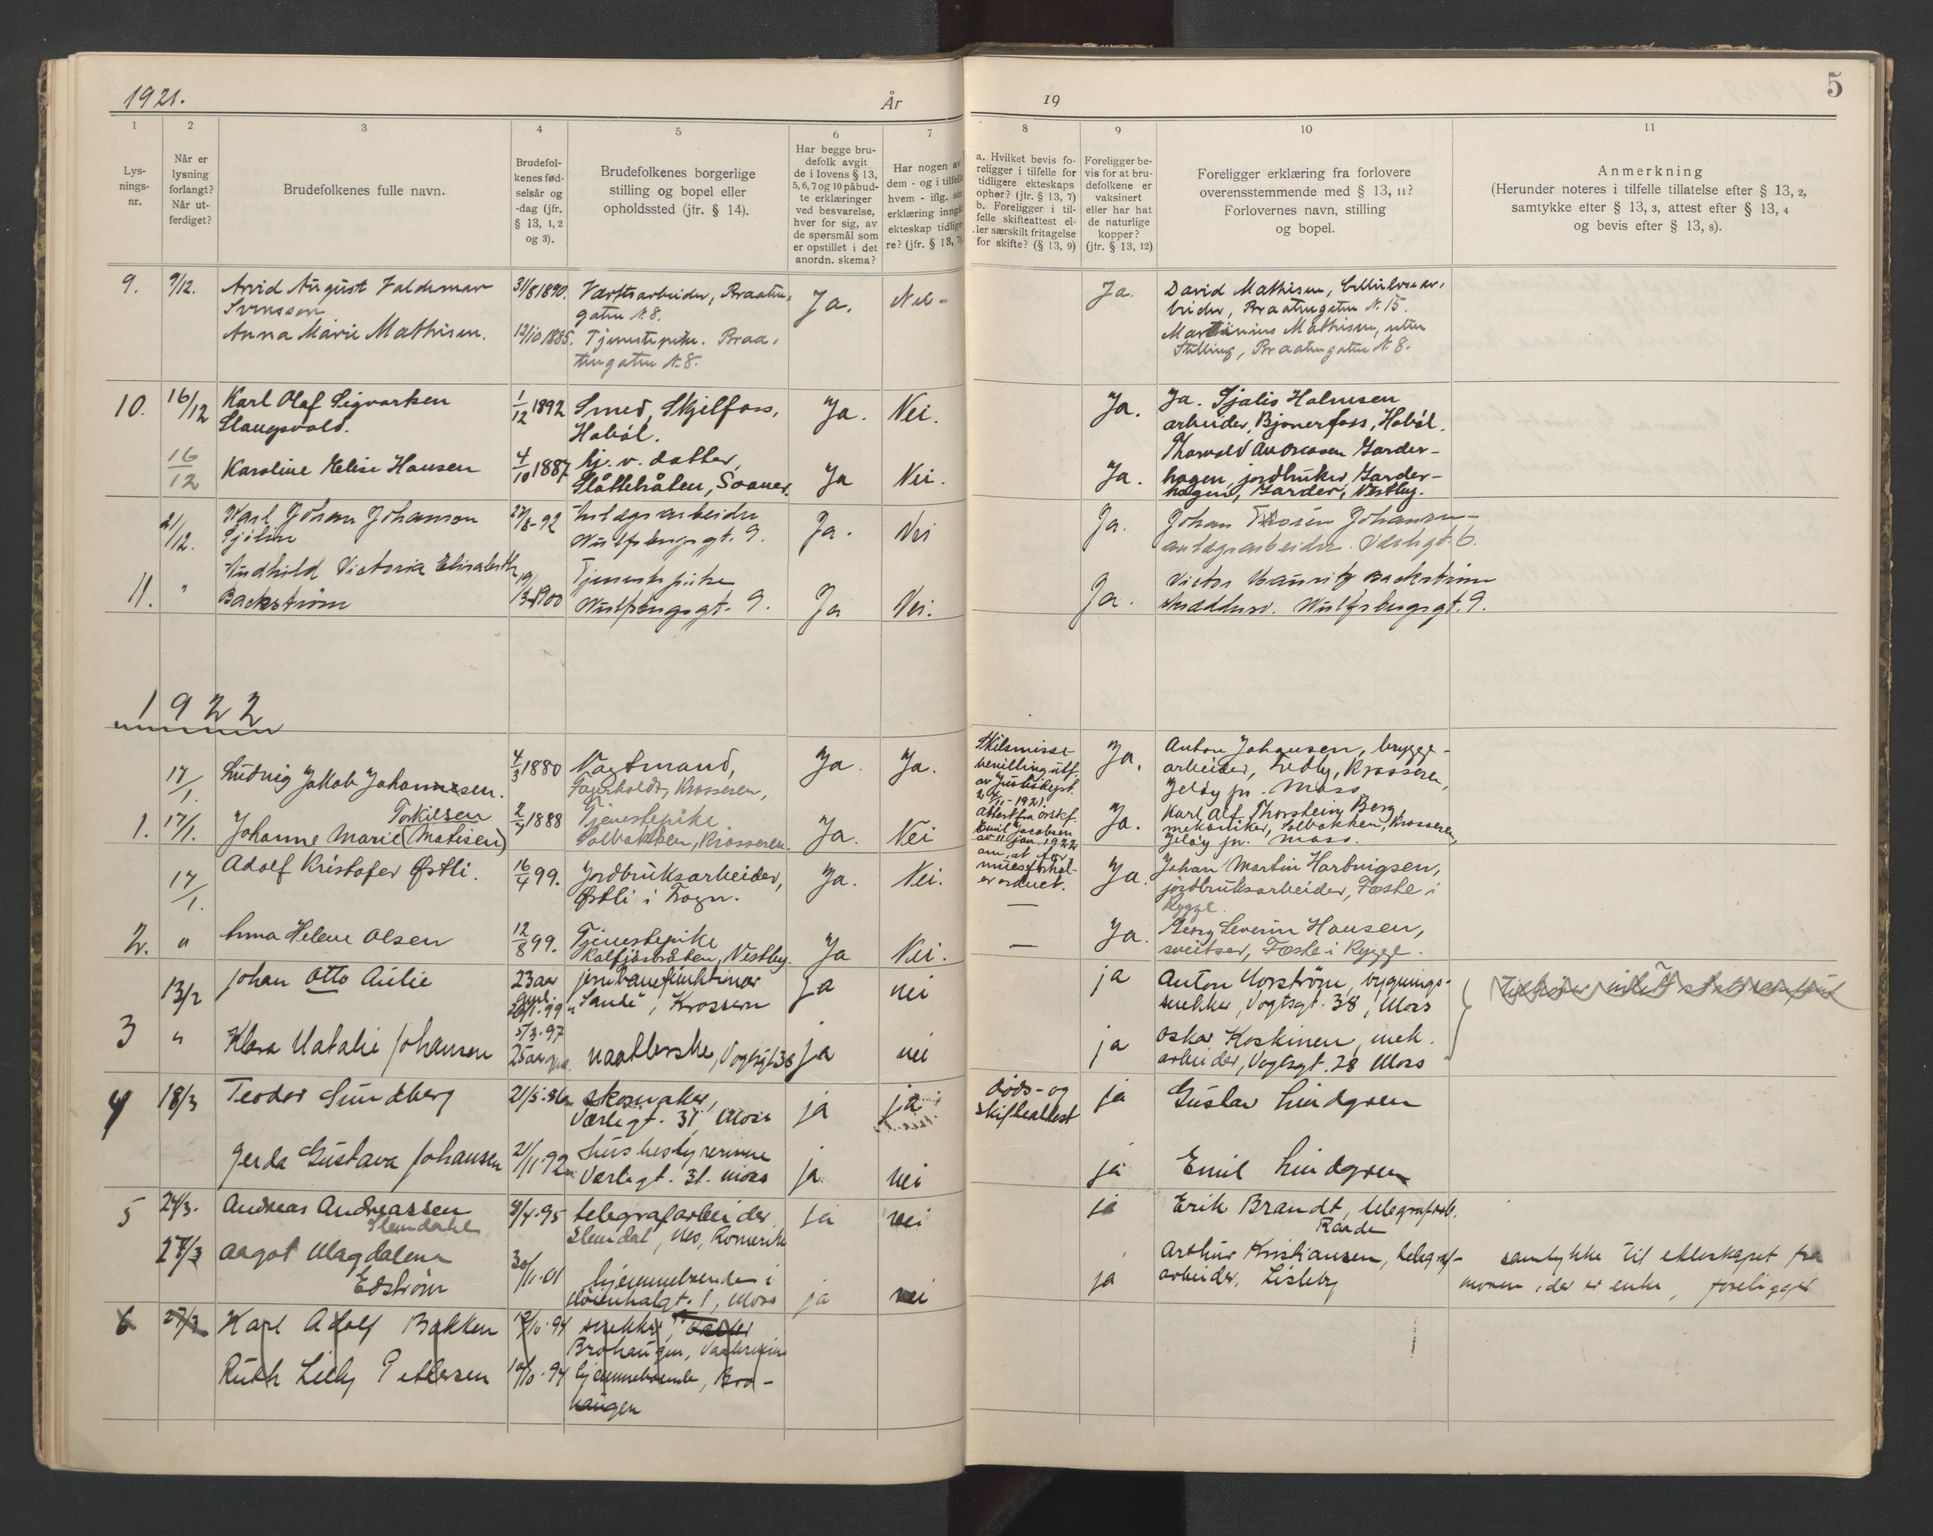 1921.
År
19
5
1
2
3
4
5
6
7
8
9
10
11
Lys-
nings-
nr.
Når er
lysning
forlangt?
Når ut-
ferdiget?
Brudefolkenes fulle navn.
Brudefol-
kenes fød-
selsår og
-dag (jfr.
§ 13, 1, 2
og 3).
Brudefolkenes borgerlige
stilling og bopel eller
opholdssted (jfr. § 14).
Har begge bru-
defolk avgit
de i lovens § 13,
5, 6, 7 og 10 påbud-
te erklæringer
ved besvarelse,
hver for sig, av
de spørsmål som
er opstillet i det
anordn. skema?
Har nogen av
dem - og i tilfelle
hvem - iflg. sin
erklæring inngått
ekteskap tidlige-
re? (jfr. § 13, 7).
a. Hvilket bevis fo-
religger i tilfelle for
tidligere ekteskaps
ophør? (jfr. § 13, 7)
b. Foreligger i til-
felle skifteattest el-
ler særskilt fritagelse
for skifte? (§ 13, 9)
Foreligger be-
vis for at bru-
defolkene er
vaksinert
eller har hat
de naturlige
kopper?
(jfr. § 13, 12)
Foreligger erklæring fra forlovere
overensstemmende med § 13, 11?
Forlovernes navn, stilling
og bopel.
Anmerkning
(Herunder noteres i tilfelle tillatelse efter § 13, 2,
samtykke efter § 13, 3, attest efter § 13, 4
og bevis efter § 13, 8).
9. 9/12. Arvid August Valdemar 31/8 1890. Værftsarbeider, Braatin- Ja. Nei- Ja. David Mathisen, Cellulosear-
Svensson gaten N. 8. beider, Braatengaten N. 15.
Anna Marie Mathisen. 12/10 1885. Tjenestepike. Braa- Martinius Mathisen, uten
tengaten N. 8. Stilling, Braatengaten N. 8.
10. 16/12 Karl Olaf Sigvartsen 1/12 1892 Smed, Skjelfoss, Ja. Nei. Ja. Ja. Hjalis Halvorsen
Slaugsvold. Hobøl. arbeider, Bjonerfoss, Hobøl.
16/12 Karoline Elise Hansen 4/10 1887 hj. v. datter, Ja Nei. Ja. Thorvald Andreasen Garder-
Slåttebråten, Soaner. hagen, jordbruker, Garder-
hagen, Garder, Vestby.
21/12. Karl Johan Johanson 27/8-92 anlægsarbeider Ja. Nei Ja. Johan Johanson-
Sjölin Wulfsbergsgt. 9. anlægsarbeider. Værlegt. 6.
11. " Victoria Elisabeth 19/3 1900 Tjenestepike Ja Nei. Ja. Victor Mauritz Backström
Backström Wulfsbergsgt. 9. Wulfsbergsgt. 9.
1922
17/1. Ludvig Jakob Johannesen. 4/3 1880 Vagtmand, Ja. Ja. Skilsmisse- Ja. Anton Johansen, brygge-
Fagerholdt, Krosseren, bevilling utf. arbeider, Fredly, Krosseren,
av Justisdept. Jeløy pr. Moss
1. 17/1. Torkilsen 2/7 1888 Tjenestepike Ja. Nei attest fra o.r.sakf. Ja. Karl Alf Thorstein Berg
Johanne Marie (Matisen) Solbakken, Krosseren. Emil Jacobsen mekaniker, Solbakken, Krosseren,
av 11 jan. 1922 Jeløy pr. Moss.
om, at for-
muesforhol.
er ordnet.
17/1. Adolf Kristofer Østli. 16/4 99. Jordbruksarbeider, Ja. Nei. — Ja. Johan Martin Hartvigsen,
Østli i Frogn. jordbruksarbeider, Foste i
Rygge.
2. " Anna Helene Olsen 12/8 99. Tjenestepike Ja Nei. — Ja. Georg Severin Hansen,
Vestby. sveitser, Foste i Rygge.
13/2 Johan Otto Aulie 23 aar jernbanefunktionær ja nei ja Anton Norström, bygnings-
"Sande", Krossern snekker, Vogtsgt. 38, Moss
3 " Klara Natalie Johansen 5/3.97 naatlerske, Vogtsgt 38 ja nei ja Oskar Koskinen, mek.
arbeider, Vogtsgt. 28 Moss
4 18/3 Teodor Sundberg skomaker, ja ja døds- og ja Gustav Lindgren
Værlegt. 31, Moss skifteattest
Gerda Gustava Johansen 21/11.92 husbestyrerinne ja. nei ja Emil Lindgren
Værlegt. 31. moss
5 24/3. Andreas Andreassen 9/4.95 telegrafarbeider ja nei ja Erik Brandt, telegrafarb.
Slemdahl Slemdal, Nes, Romerike Raade
27/3 Aagot Magdalena 30/11.01 hjemmeværende i ja nei ja Arthur Kristiansen, telegraf- samtykke til ekteskapet fra
Edström 1, Moss arbeider, Lisleby moren, der er enke, foreligger
6 27/3 Karl Adolf Bakken 12/10.94 snekker,
Brohaugen,
Ruth Lilly Pettersen 10/10.94 hjemmeværende, Bro-
haugen